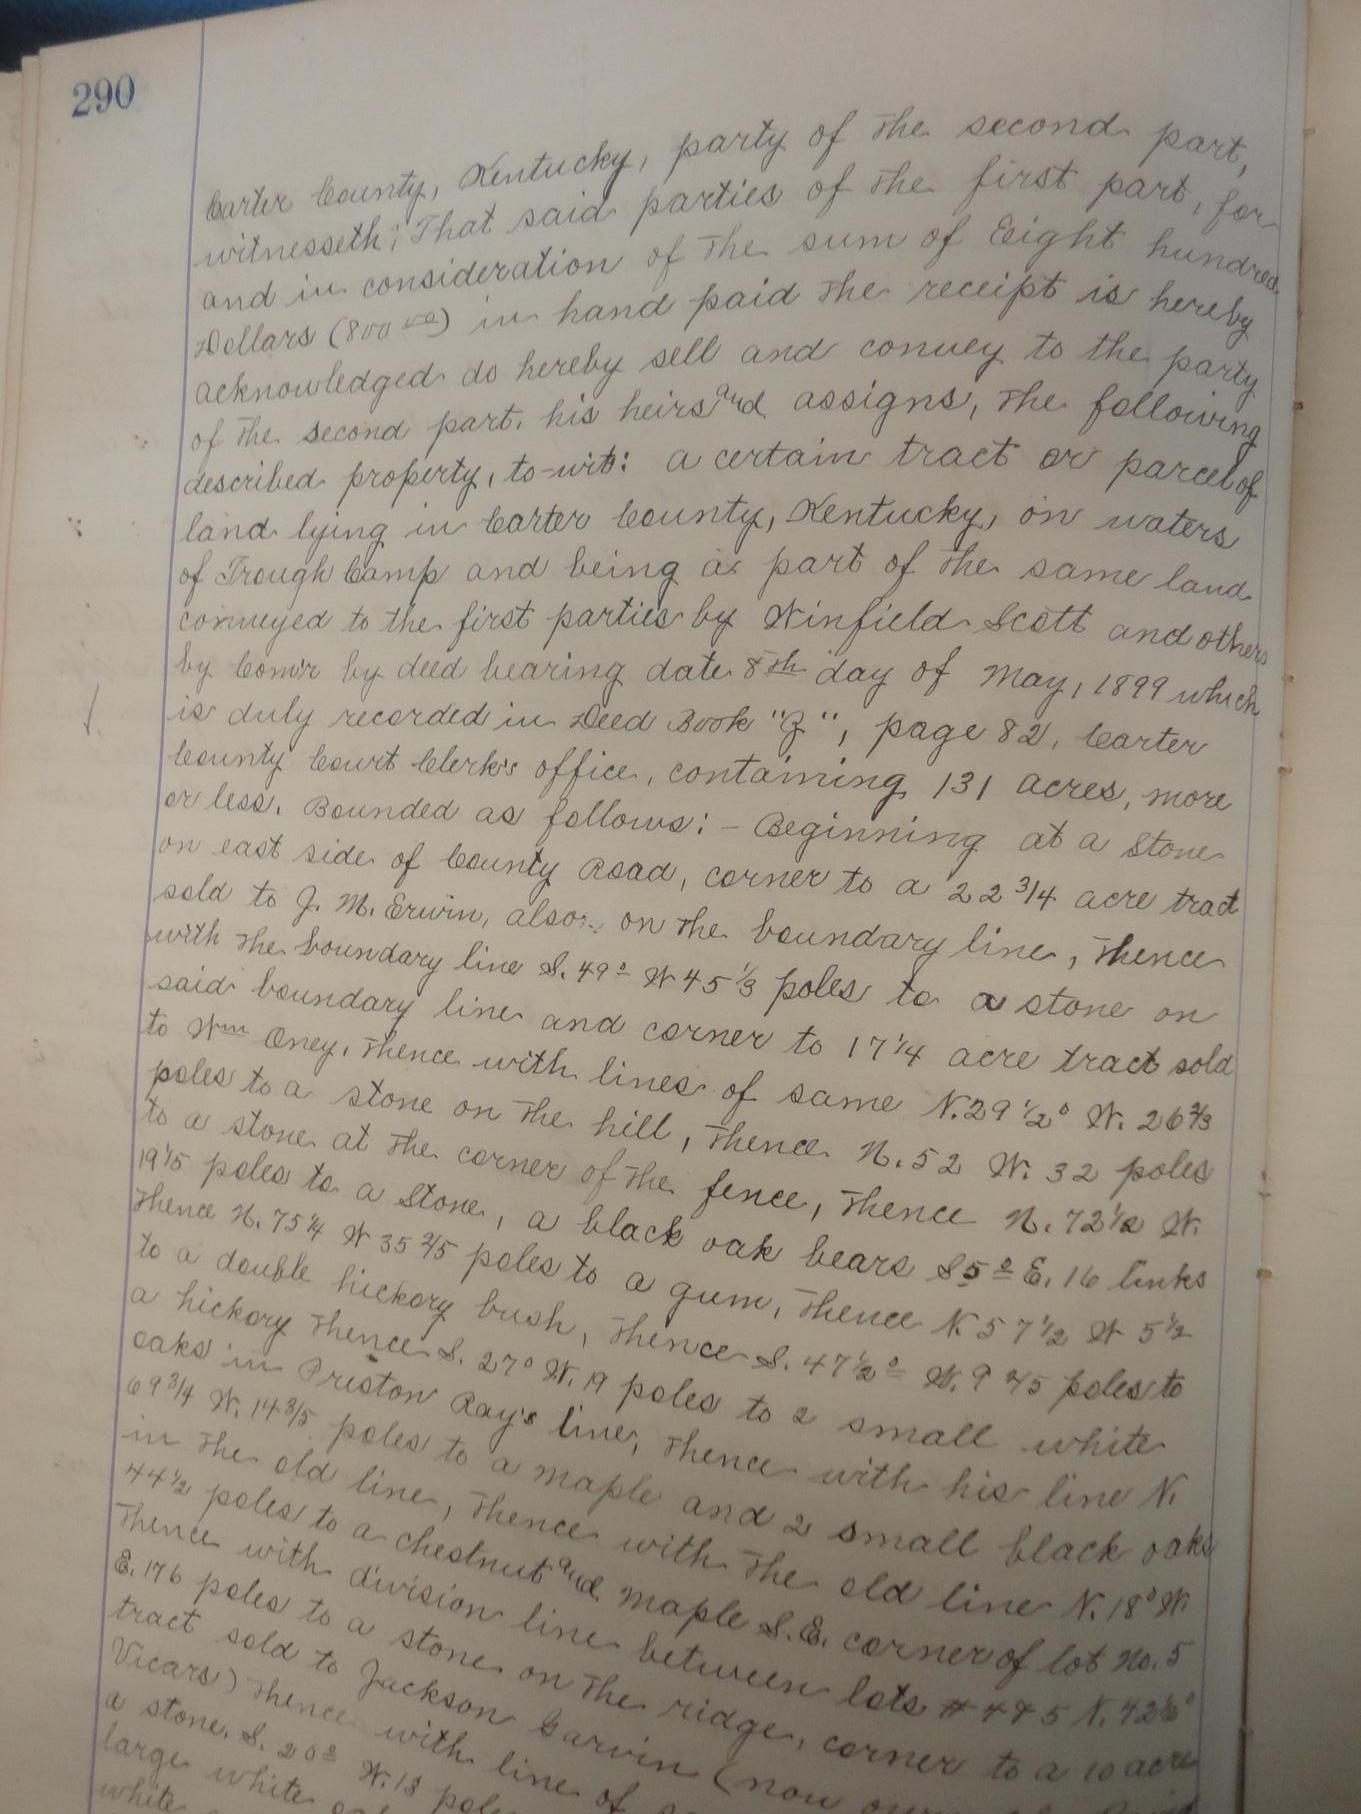 290
Carter County, Kentucky, party of the second part,
witnesseth; That said parties of the first part, for
and in consideration of the sum of Eight hundred
Dollars (800 00) in hand paid the receipt is hereby
acknowledged do hereby sell and convey to the party
of the second part, his heirs and assigns, the following
described property, to-wit: a certain tract or parcel of
land lying in Carter County, Kentucky, on waters
of Trough Camp and being a part of the same land
conveyed to the first parties by Winfield Scott and others
by Com'r by deed bearing date 8th day of May, 1899 which
is duly recorded in Deed Book "Z", page 82, Carter
County Court Clerk's office, containing 131 acres, more
or less. Bounded as follows: - Beginning at a Stone
on east side of County Road, corner to a 22 3/4 acre tract
sold to J. M. Erwin, also on the boundary line, thence
with the boundary line S. 49° W 45 1/3 poles to a stone on
said boundary line and corner to 17 1/4 acre tract sold
to Wm Oney, thence with lines of same N. 29 1/2° W. 26 2/3
poles to a stone on the hill, thence N. 52 W. 32 poles
to a stone at the corner of the fence, thence N. 72 1/2 W.
19 1/5 poles to a Stone, a black oak bears S 5° E. 16 links
thence N. 75 1/4 W 35 2/5 poles to a gum, thence N. 57 1/2 W 5 1/2
to a double hickory bush, thence S. 47 1/2° W. 9 2/5 poles to
a hickory thence S. 27° W. 19 poles to 2 small white
oaks in Priston Ray's line, thence with his line N.
69 3/4 W. 14 3/5 poles to a maple and 2 small black oaks
in the old line, thence with the old line N. 18° W.
44 1/2 poles to a chestnut and maple S. E. corner of lot No. 5
thence with division line between lots # 4 & 5 N. 42 1/2°
E. 176 poles to a stone on the ridge, corner to a 10 acre
tract sold to Jackson Garvin (now
Vicars) thence with line of
a stone. S. 20° W. 18
large white
white